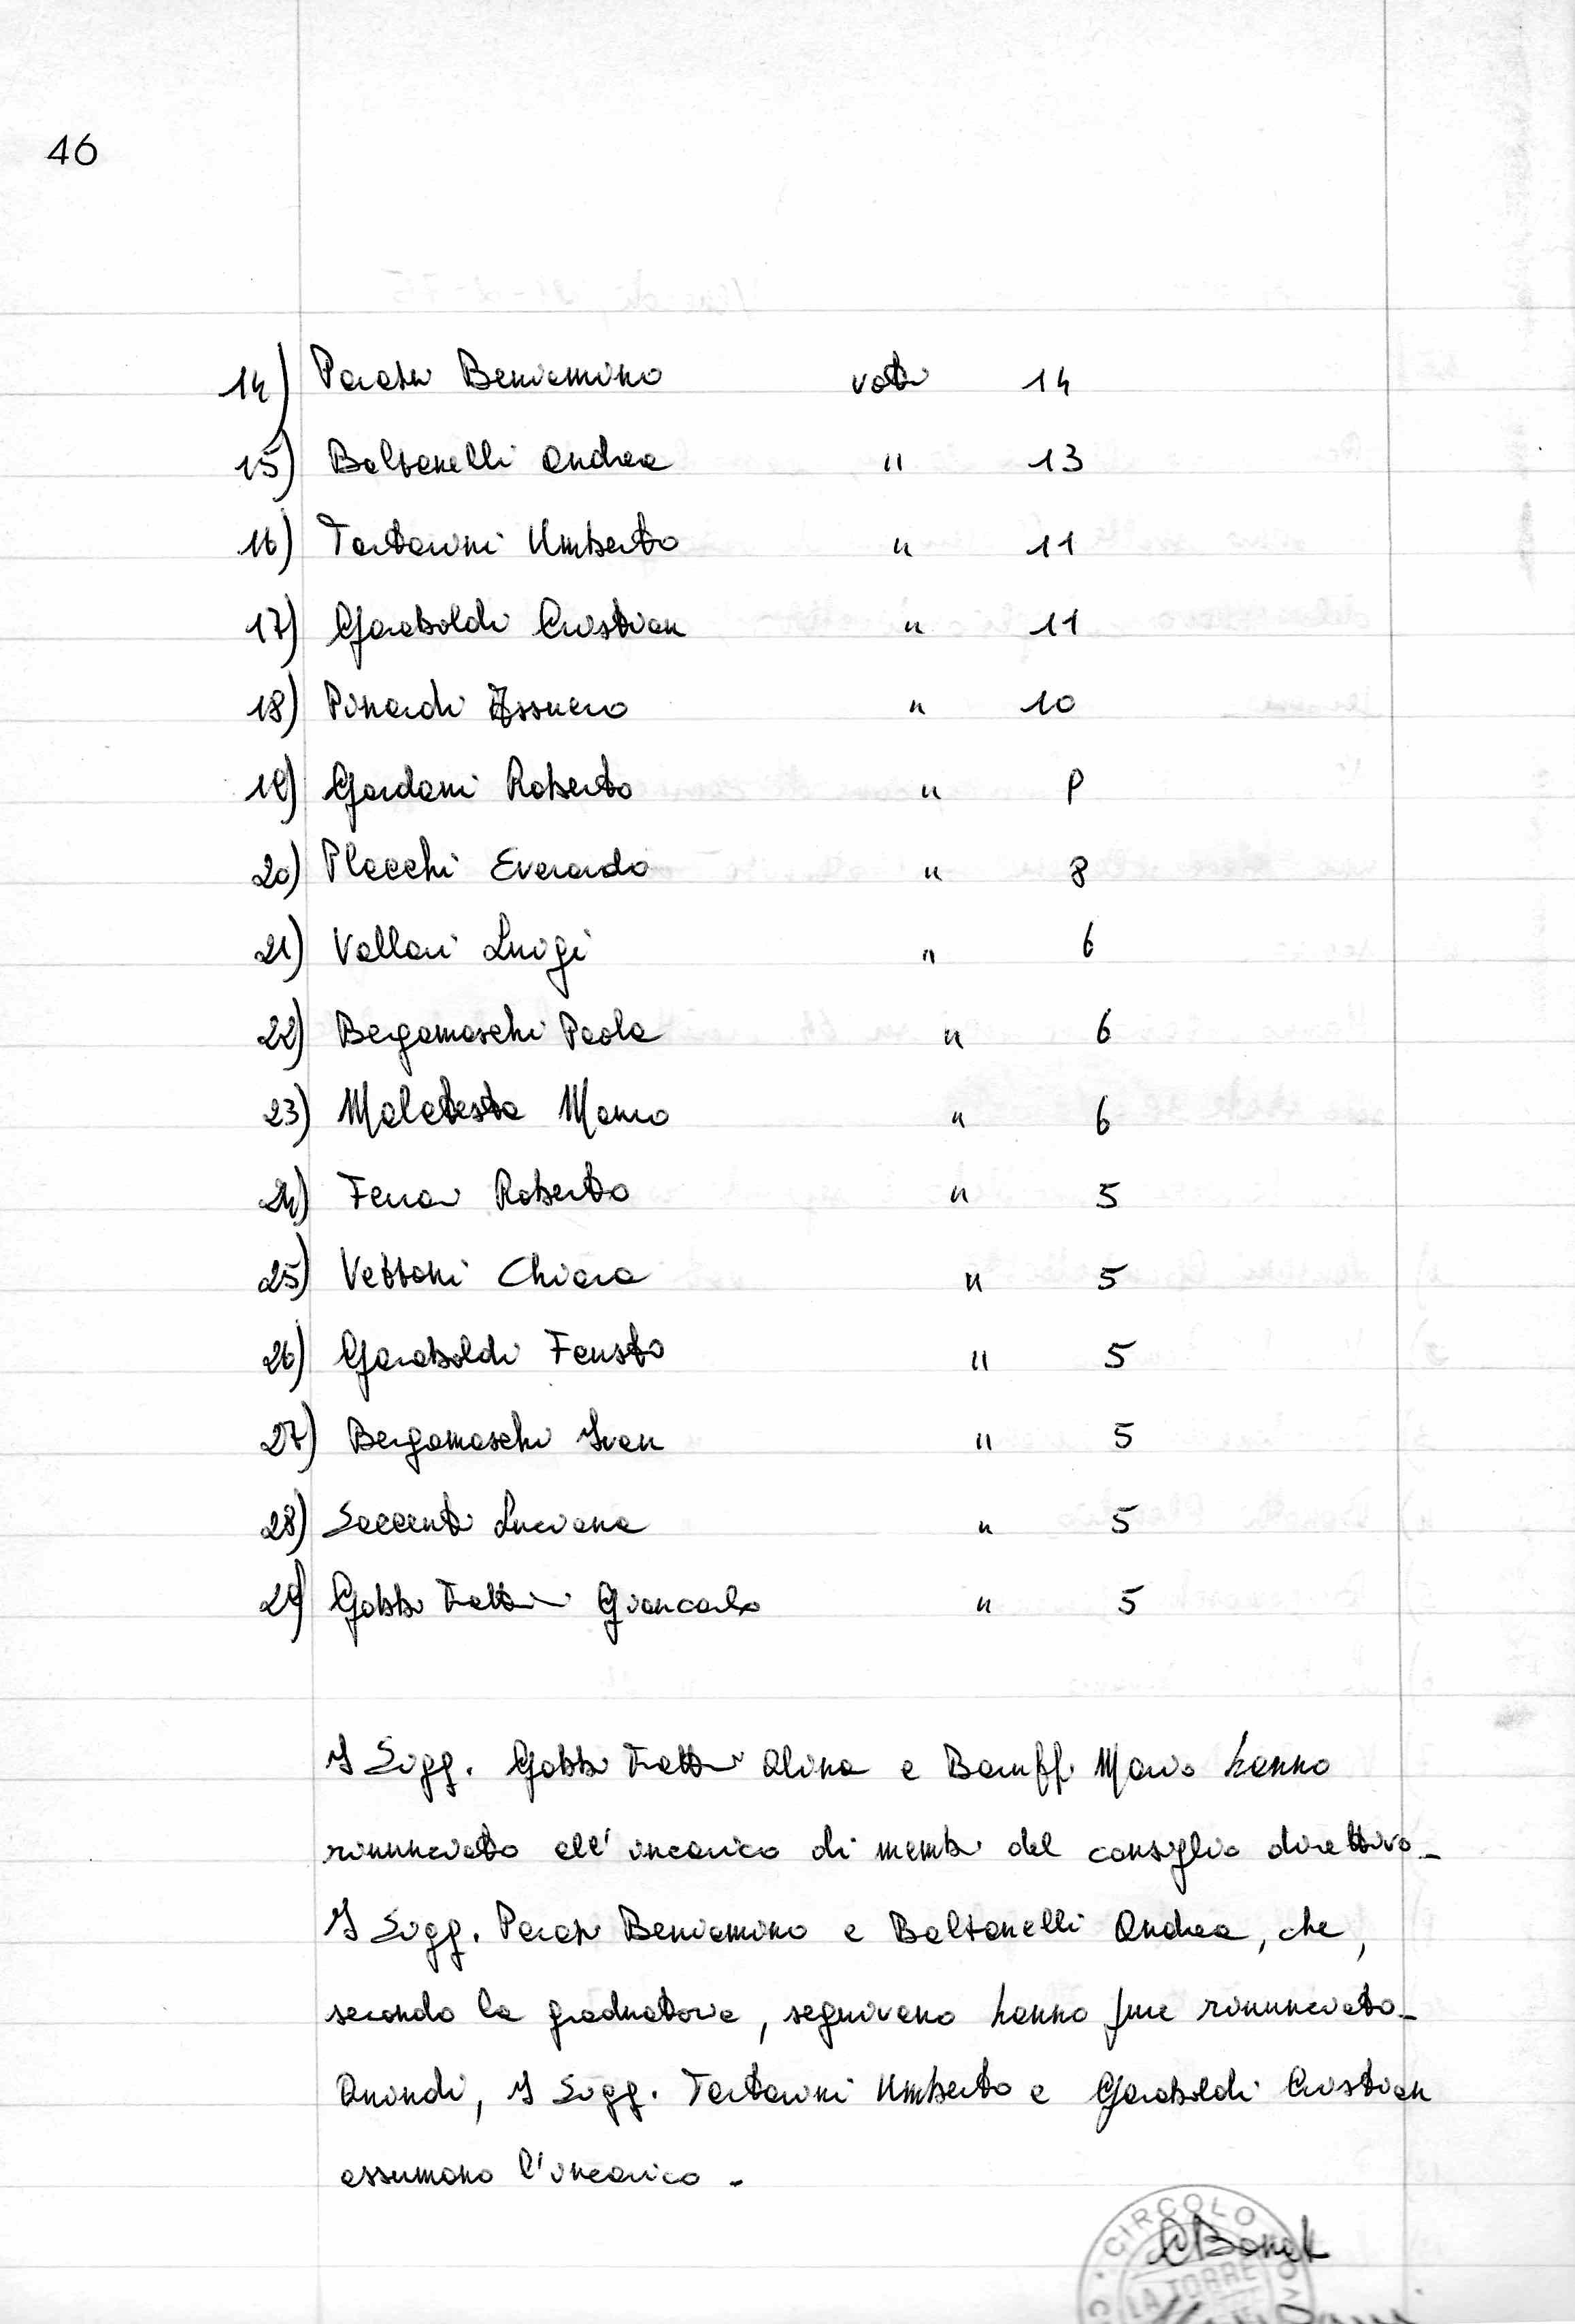 46
14) Perati Beniamino voti 14
15) Baltanelli Andrea " 13
16) Tartarini Umberto " 11
17) Garaboldi Cristian " 11
18) Pinardi Assuero " 10
19) Gardani Roberto " 9
20) Placchi Everardo " 8
21) Vallari Luigi " 6
22) Bergamaschi Paola " 6
23) Malatesta Marco " 6
24) Ferrari Roberto " 5
25) Vettori Chiara " 5
26) Garaboldi Fausto " 5
27) Bergamaschi Ivan " 5
28) Saccenti Luciana " 5
29) Gobbi Frattini Giancarlo " 5
I Sigg. Gobbi Frattini Alina e Mario hanno
rinunciato all'incarico di membri del consiglio direttivo_
I Sigg. Beniamino e Baltanelli Andrea, che,
secondo la graduatoria, seguivano hanno pure rinunciato_
Quindi, I Sigg. Tartarini Umberto e Garaboldi Cristian
assumono l'incarico _
CIRCOLO
LA TORRE